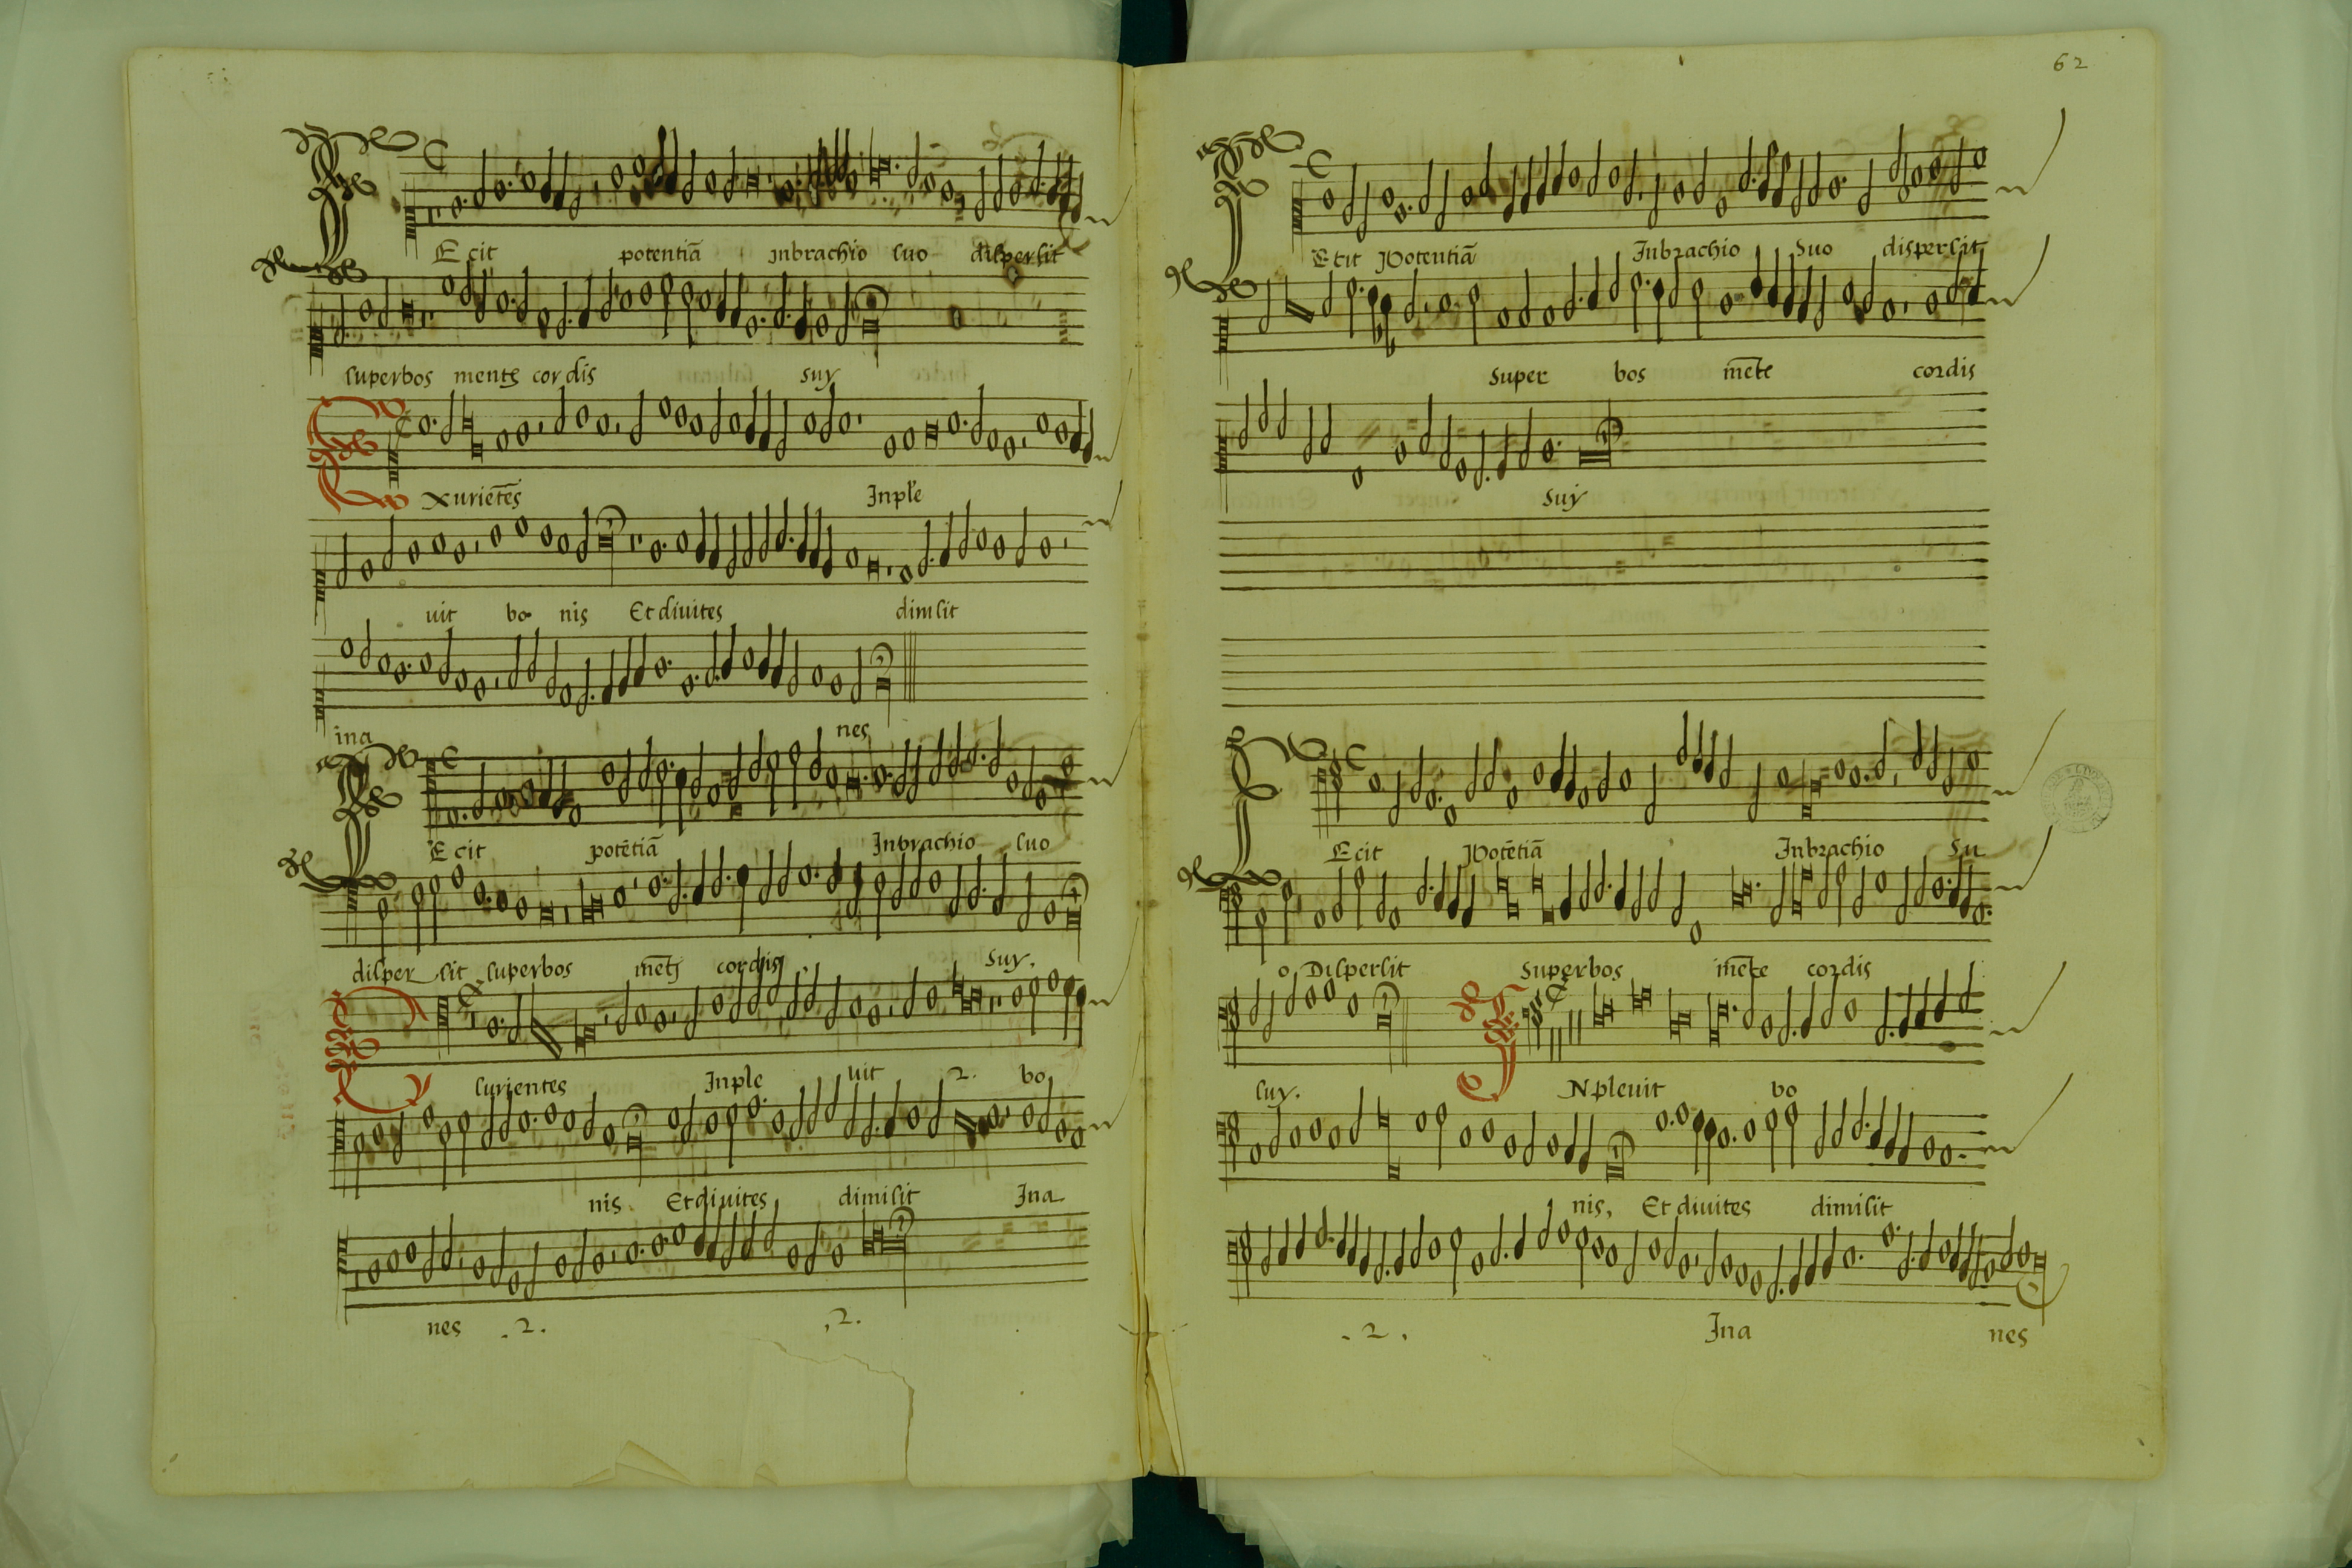 FEcit potentiã jnbrachio suo dispersit
superbos mente cordis suy
Exurietẽs Jnple
uit bo nis Et diuites dimisit
ina nes
FEcit potẽtiã Jnbrachio suo
disper sit superbos mẽte cordis suy.
Esurientes Jnple uit .2. bo
nis Et diuites dimisit Jna
nes .2. .2.
62
FEcit Potentiã Jnbrachio Suo dispersit
Super bos mẽte cordis
suy
FEcit Potẽtiã Jnbrachio Su
o Dispersit Superbos mẽte cordis
suy. JNpleuit bo
nis, Et diuites dimisit
.2. Jna nes